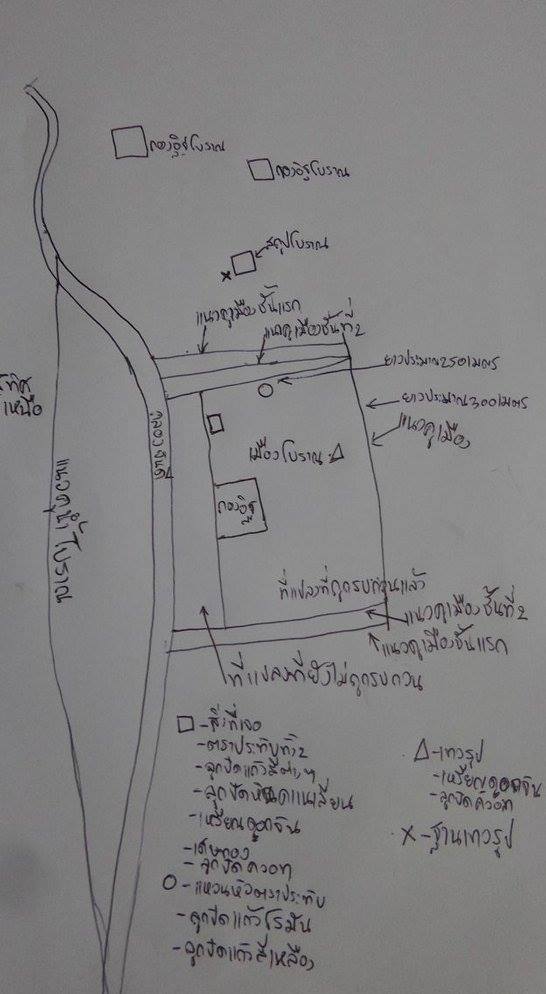 กองอิฐโบราณ
กองอิฐโบราณ
สถูปโบราณ
x
แนวคูเมืองชั้นแรก
แนวคูเมืองชั้นที่2
ยาวประมาณ250เมตร
ทิศ
เหนือ
ยาวประมาณ300เมตร
แนวคูเมือง
เมืองโบราณ
กองอิฐ
แนวคูน้ำโบราณ
ที่แปลงที่ถูกรบกวนแล้ว
แนวคูเมืองชั้นที่2
แนวคูเมืองชั้นแรก
ที่แปลงที่ยังไม่ถูกรบกวน
-สิ่งที่เจอ
-ตราประทับ
-ลูกปัดแก้วสีต่างๆ
-ลูกปัดหินคาเนเลี่ยน
-เหรียญดอกจัน
-เศษทอง
-ลูกปัดควอท
-แหวนหัวตราประทับ
-ลูกปัดแก้วโรมัน
-ลูกปัดแก้วสีเหลือง
-เทวรูป
-เหรียญดอกจัน
-ลูกปัดควอท
x-ฐานเทวรูป